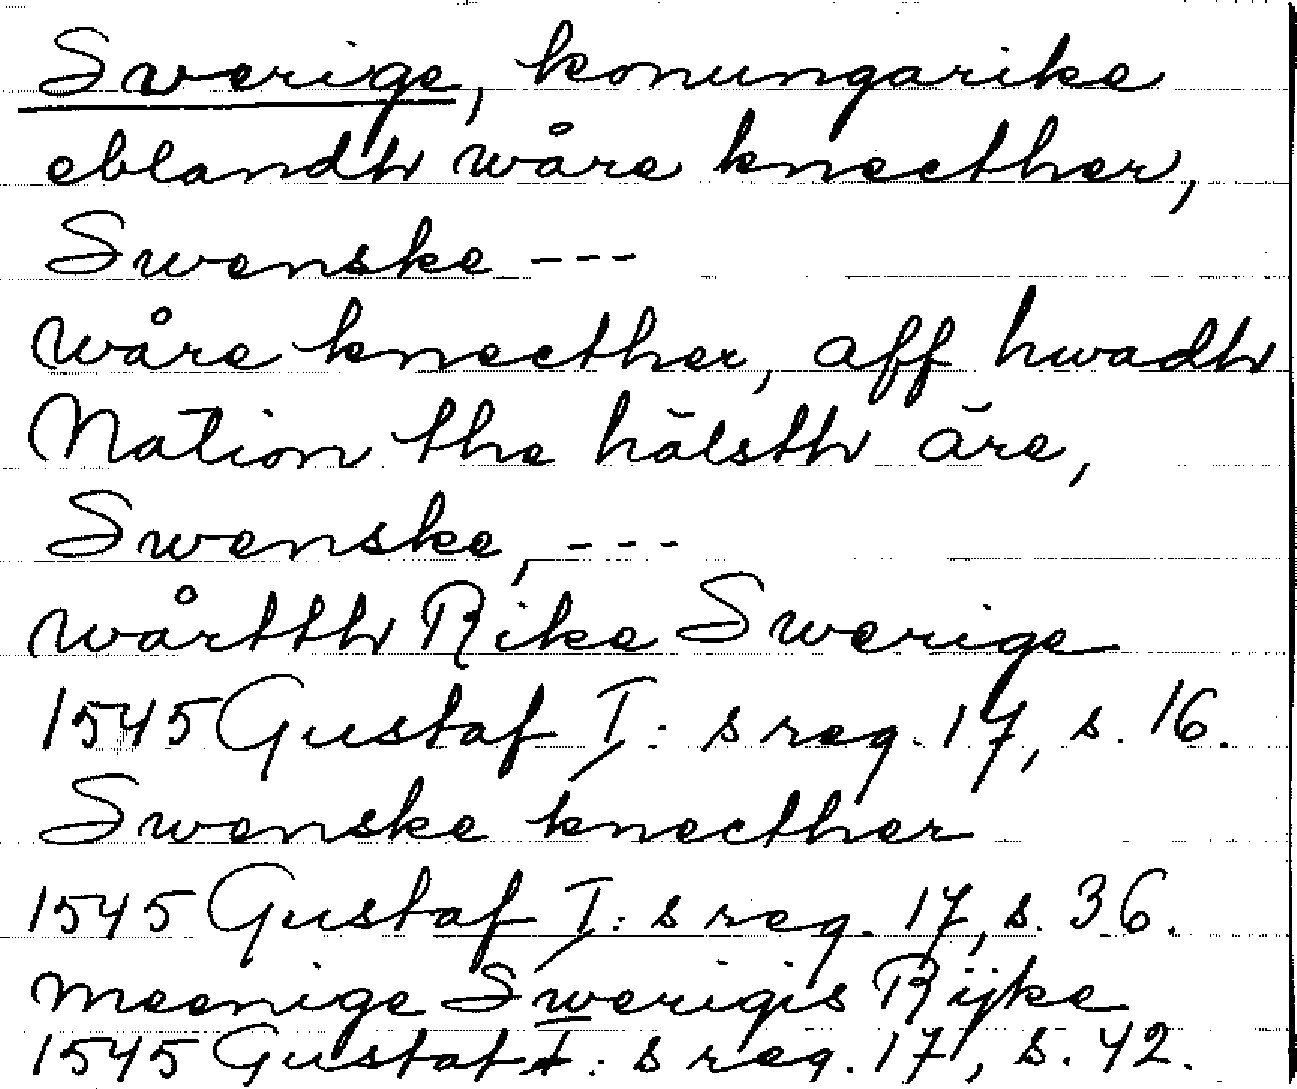 Swerige, konungarike
eblandh wåre knecther,
Swenske ---
wåre knecther, aff hwadh
Nation the hälsth äre,
Swenske, ---
wårtth Rike Swerige
1545 Gustaf I: s reg. 17, s. 16.
Swenske knecther
1545 Gustaf I: s reg. 17, s. 36.
meenige Swerigis Rijke
1545 Gustaf I: s reg. 17, s. 42.